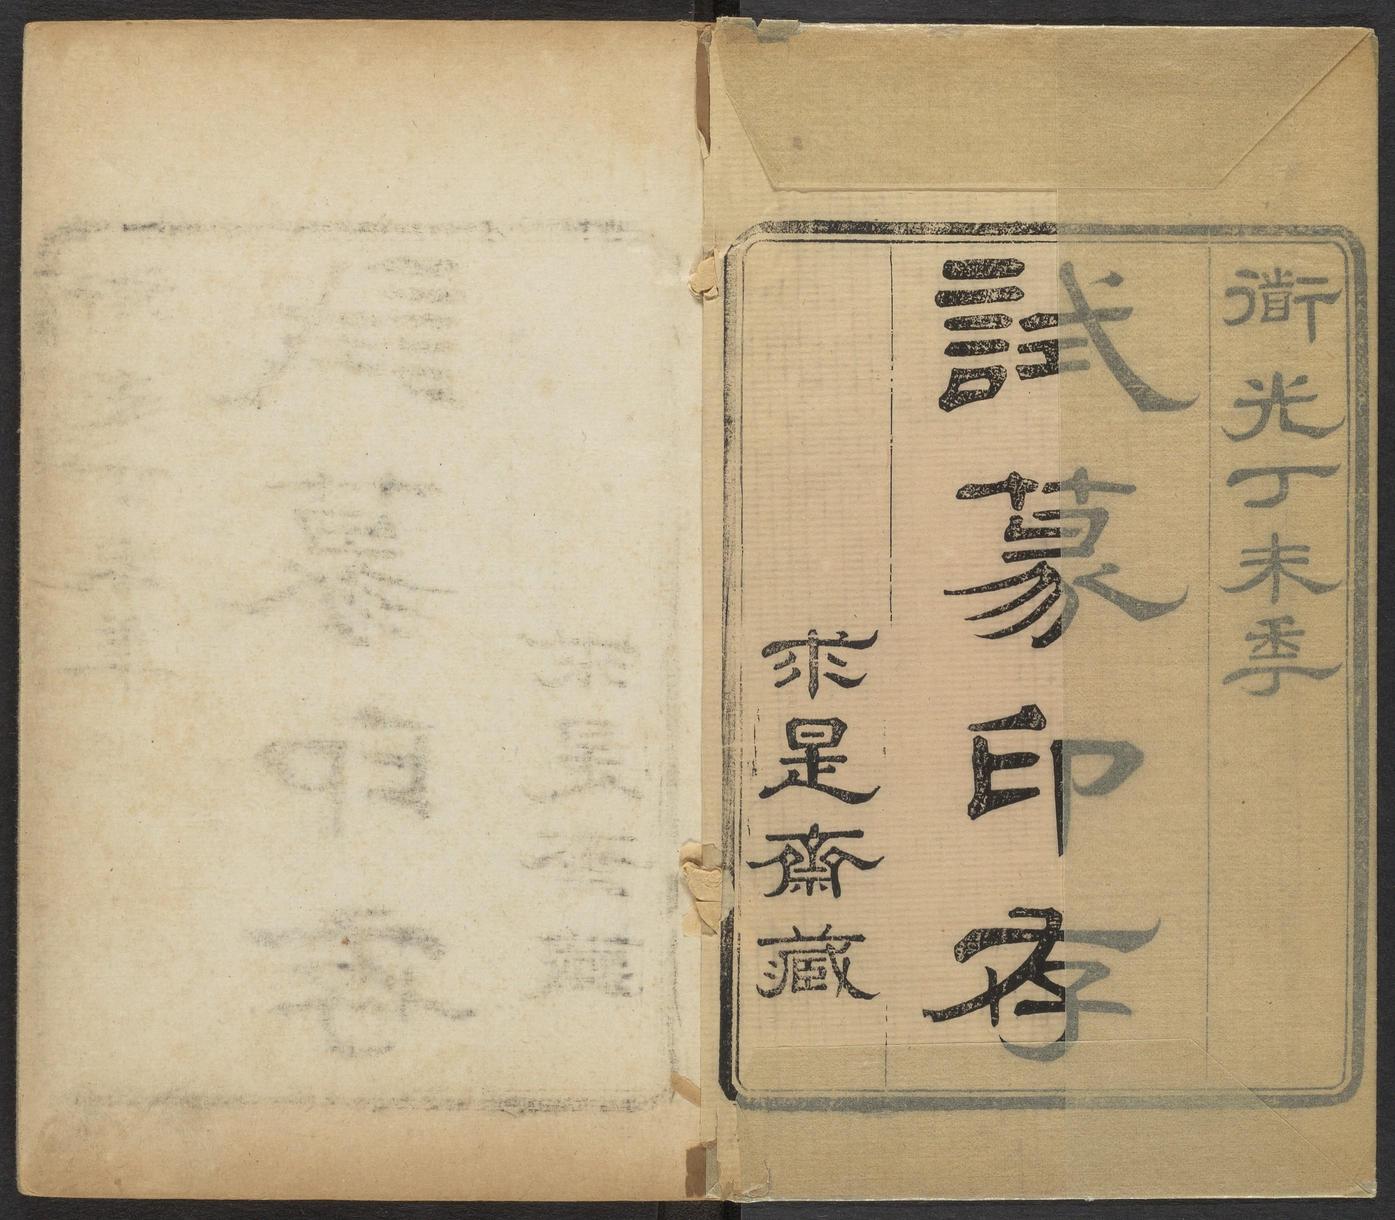 衟光丁未季
試篆印存
求是齋藏